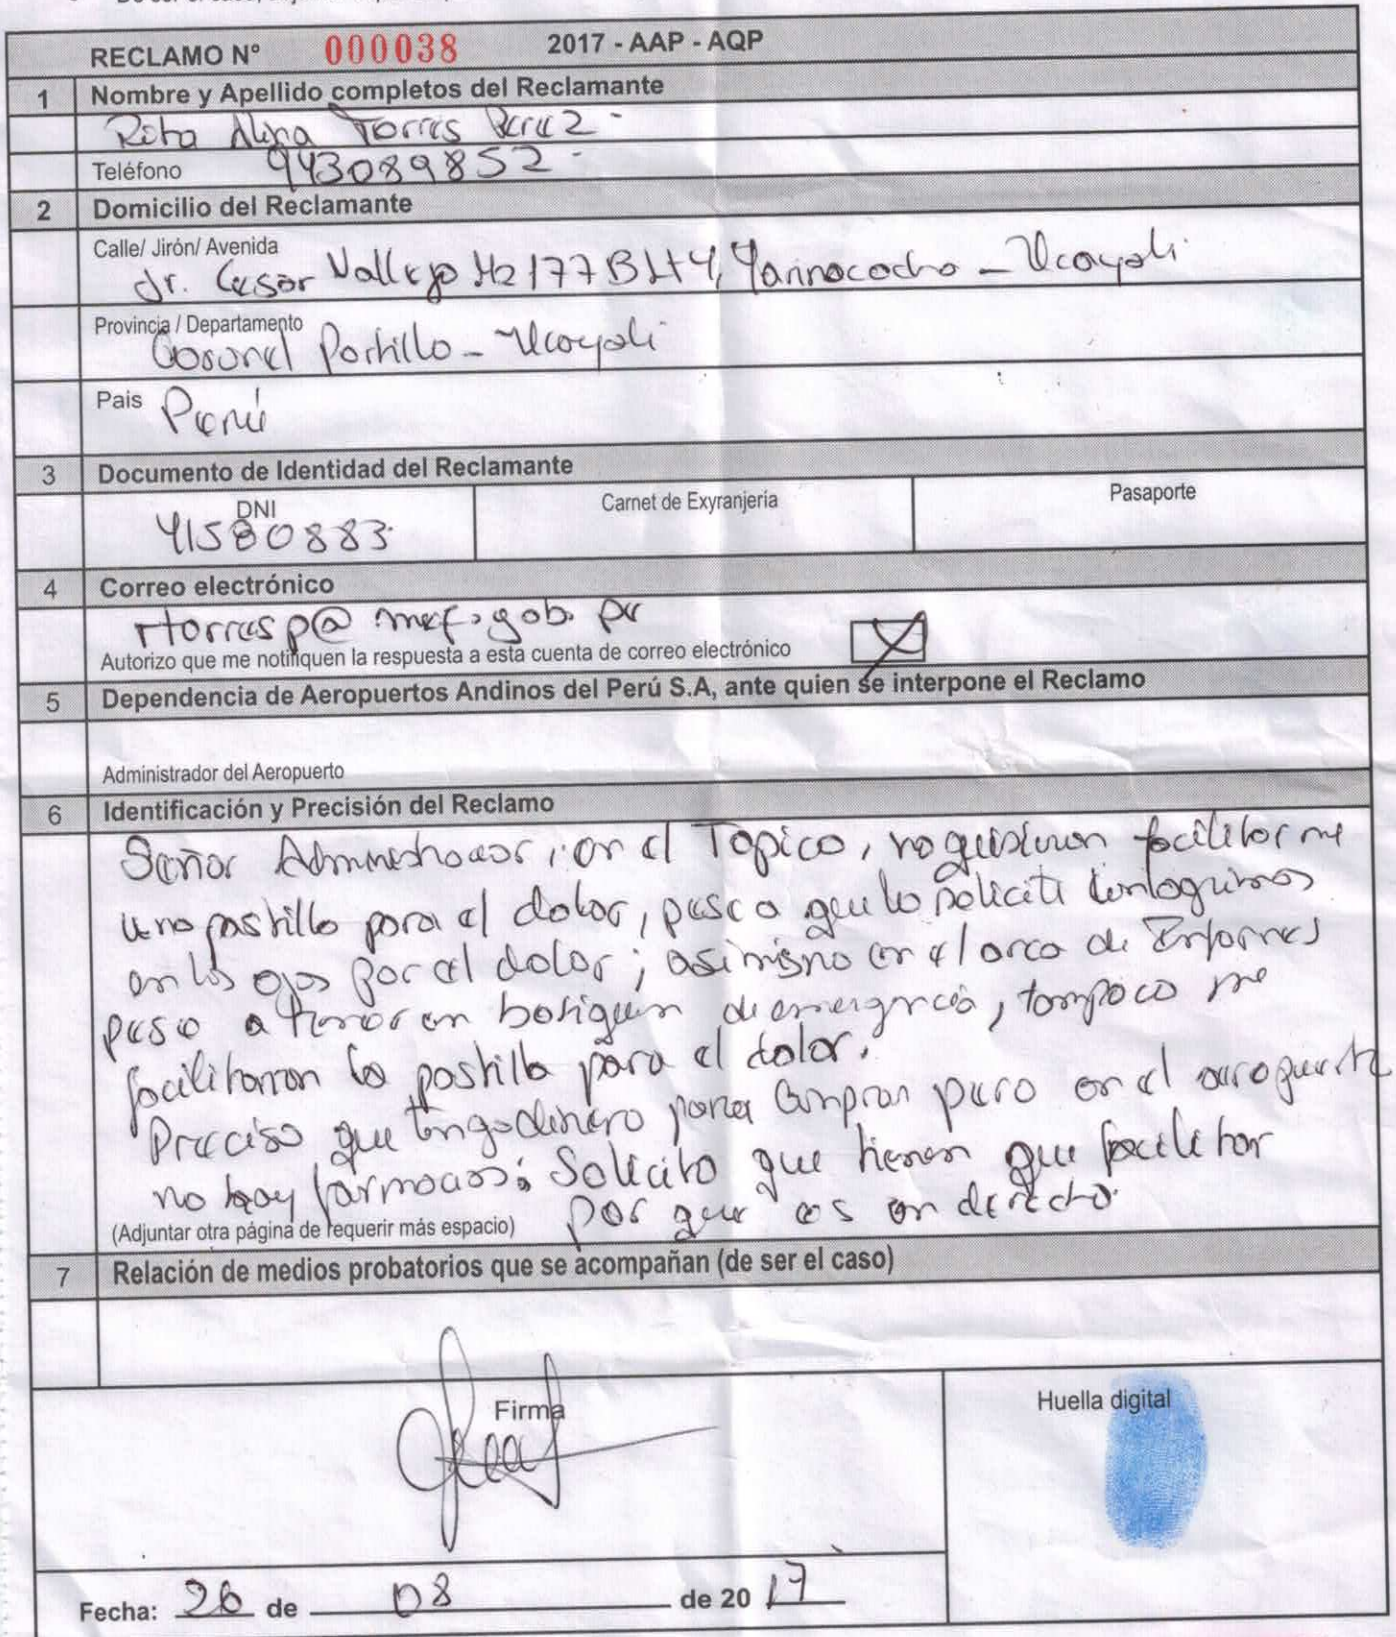 RECLAMO Nº 000038 2017 - AAP - AQP
1 Nombre y Apellido completos del Reclamante
Rita Torres Perez
Teléfono 943089852
2 Domicilio del Reclamante
Calle/ Jirón/ Avenida
Jr. Cesar Vallejo Mz 177 B Lt 4, Yarinacocha - Ucayali
Provincia / Departamento
Coronel Portillo - Ucayali
Pais Perú
3 Documento de Identidad del Reclamante
DNI Carnet de Exyranjería Pasaporte
41580883
4 Correo electrónico
rtorresp@mef.gob.pe
Autorizo que me notifiquen la respuesta a esta cuenta de correo electrónico
5 Dependencia de Aeropuertos Andinos del Perú S.A, ante quien se interpone el Reclamo
Administrador del Aeropuerto
6 Identificación y Precisión del Reclamo
Señor Administrador, en el Topico, no quisieron facilitarme
una pastilla para el dolor, pese a que lo solicite con lagrimas
en los ojos por el dolor; asimismo en el area de Informes
pese a tener un botiquin de emergencia, tampoco me
facilitarron la pastilla para el dolor.
Preciso que tengo dinero para comprar pero en el aeropuerto
no hay farmacias; Solicito que tienen que facilitar
(Adjuntar otra página de requerir más espacio) por que es un derecho.
7 Relación de medios probatorios que se acompañan (de ser el caso)
Firma
Huella digital
Fecha: 26 de 08 de 2017